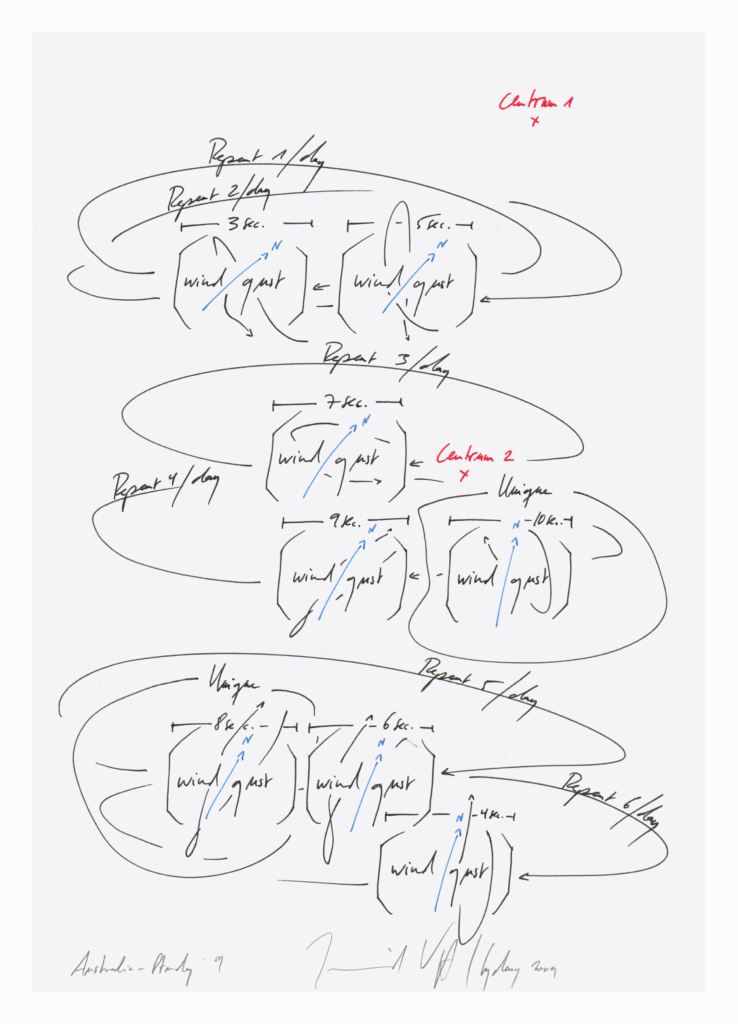 Centrum 1
x
Repeat 1/day
Repeat 2/day
3 sec. 5 sec.
N N
wind gust wind gust
Repeat 3/day
7 sec.
N
wind gust Centrum 2
x
Repeat 4/day Unique
9 sec. 10 sec.
N N
wind gust wind gust
Repeat 5/day
Unique
8 sec. 6 sec.
N N
wind gust wind gust
Repeat 6/day
4 sec.
N
wind gust
Australia-Study 9 Sydney 2009